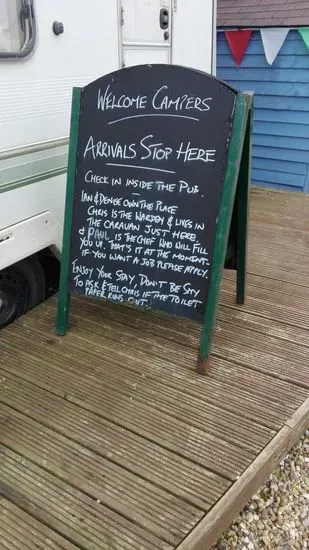 WELCOME CAMPERS
ARRIVALS STOP HERE
CHECK IN INSIDE THE PUB.
IAN & DENISE OWN THE PLACE
CHRIS IS THE WARDEN & LIVES IN
THE CARAVAN JUST HERE.
& PAUL IS THE CHEF WHO WILL FILL
YOU UP. THAT'S IT AT THE MOMENT.
IF YOU WANT A JOB PLEASE APPLY.
ENJOY YOUR STAY, DON'T BE SHY
TO ASK & TELL CHRIS IF THE TOILET
PAPER RUNS OUT!